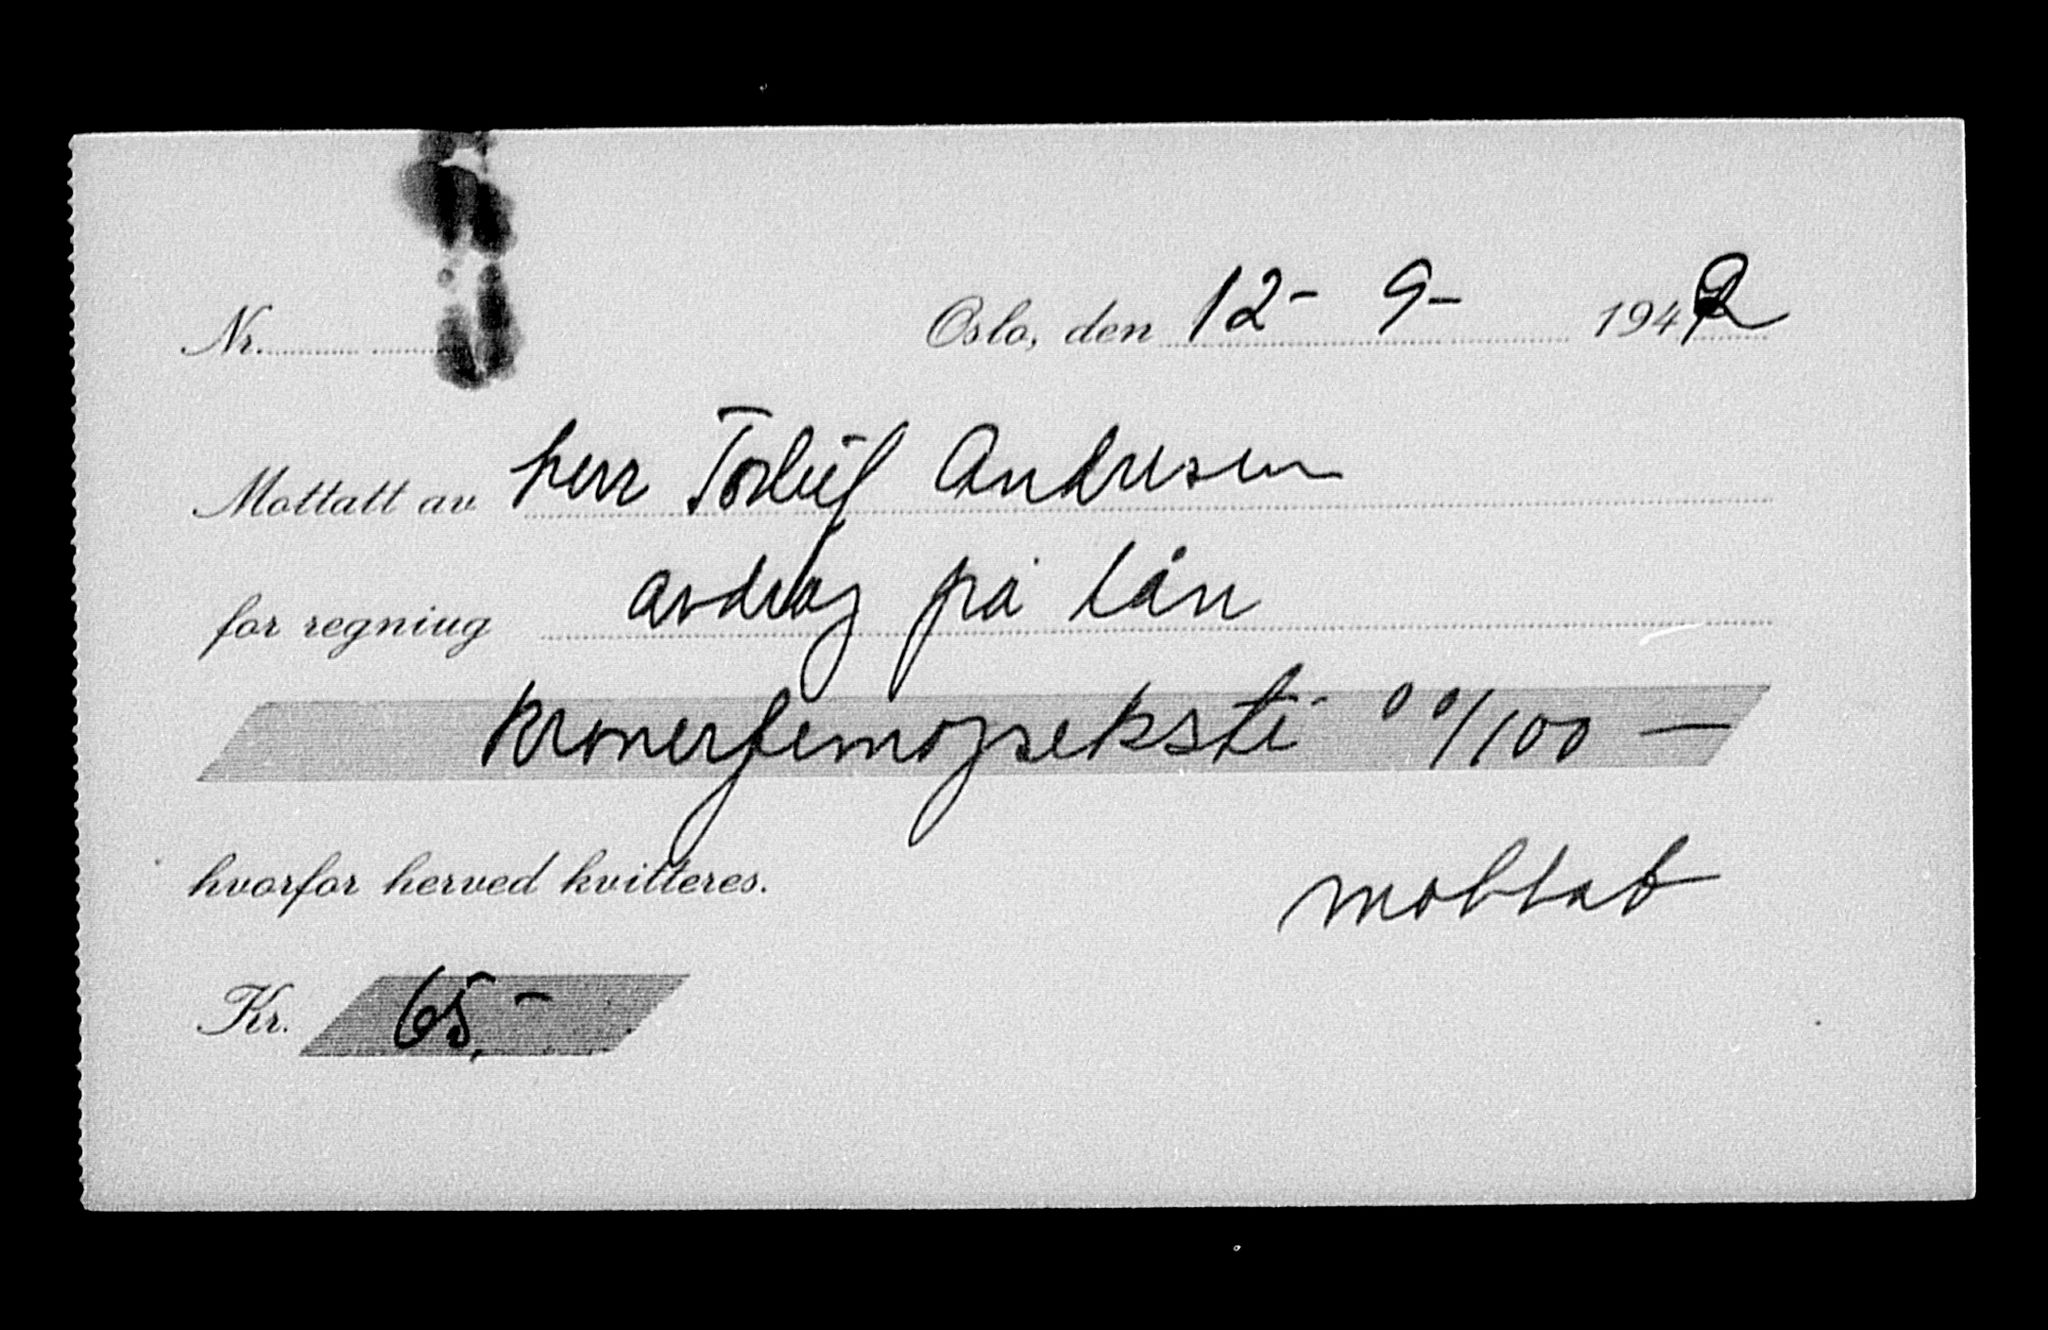 Nr. Oslo, den 12- 9- 1942
Mottatt av herr Torleif Andresen
for regning avdrag på lån
kronerfemogseksti 00/100 —
hvorfor herved kvitteres.
mottatt
Kr. 65,-